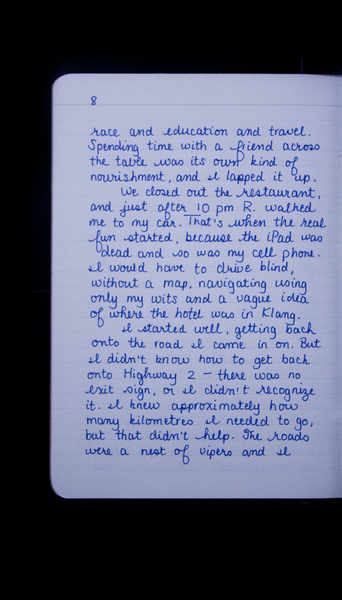 8
race and education and travel.
Spending time with a friend across
the table was its own kind of
nourishment, and I lapped it up.
We closed out the restaurant,
and just after 10 pm R. walked
me to my car. That's when the real
fun started, because the iPad was
dead and so was my cell phone.
I would have to drive blind,
without a map, navigating using
only my wits and a vague idea
of where the hotel was in Klang.
I started well, getting back
onto the road I came in on. But
I didn't know how to get back
onto Highway 2 – there was no
exit sign, or I didn't recognize
it. I knew approximately how
many kilometres I needed to go,
but that didn't help. The roads
were a nest of vipers and I